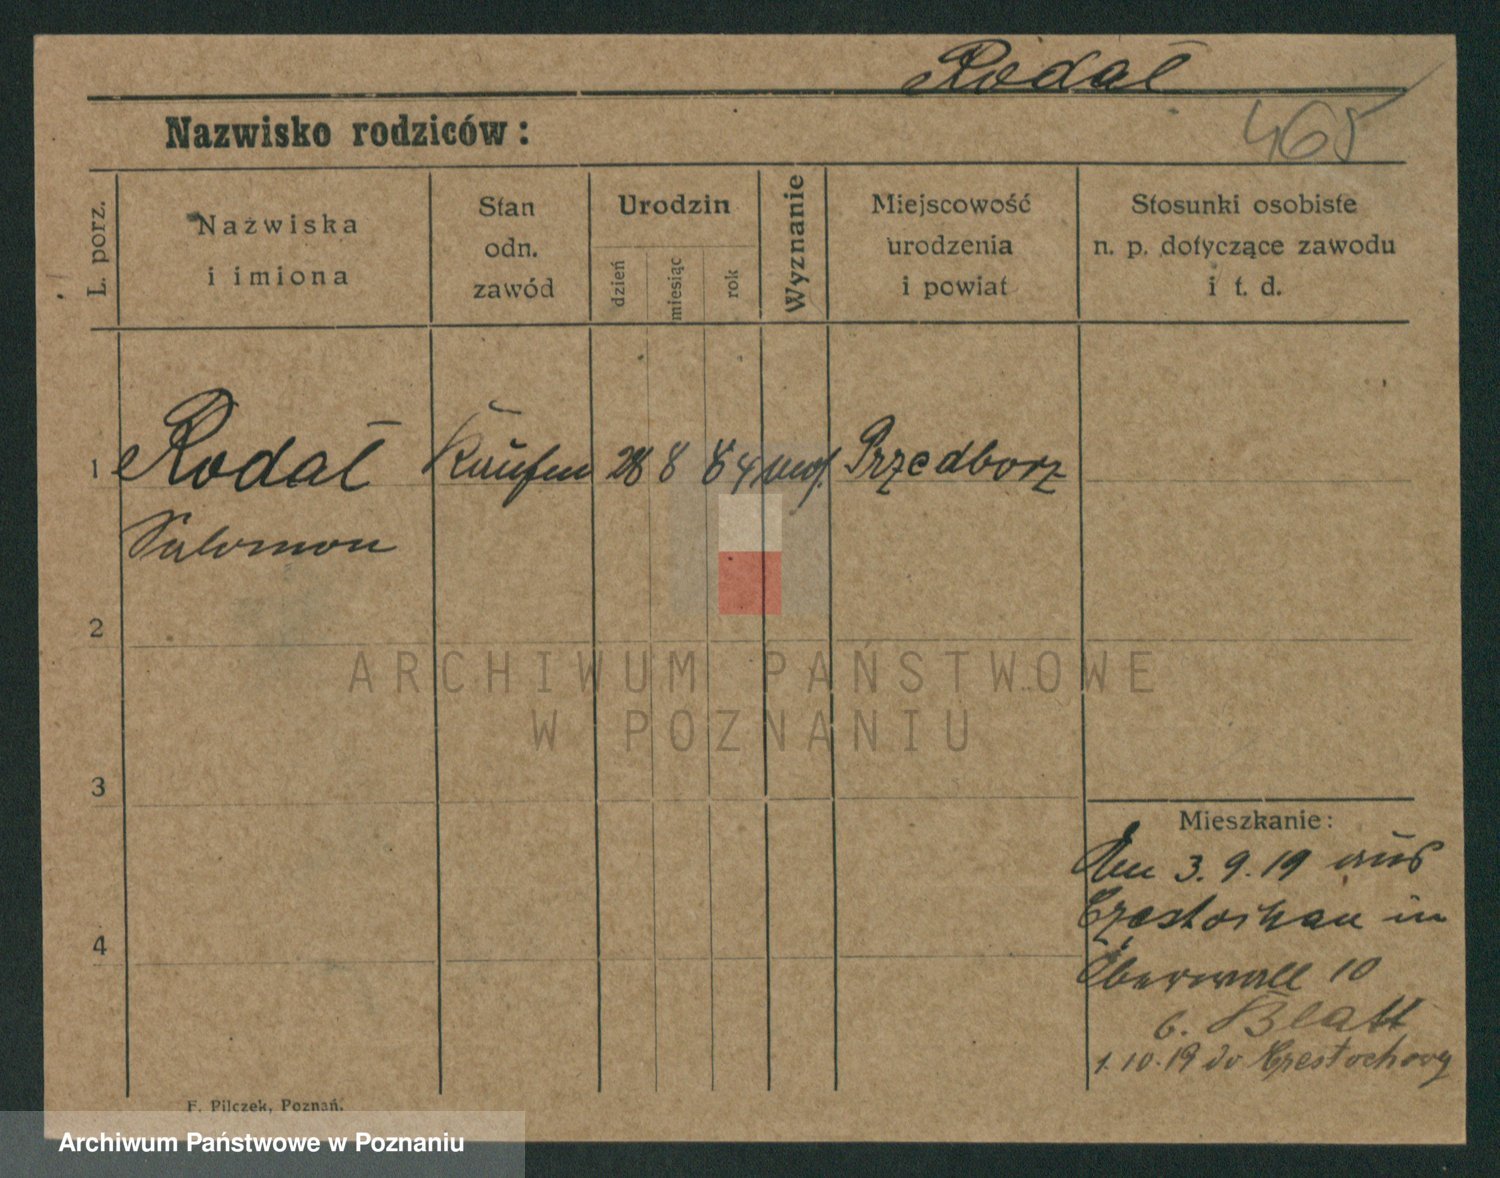 Rodał
Nazwisko rodziców:
465
L. porz.
Nazwiska
i imiona
Stan
odn.
zawód
Urodzin
dzień
miesiąc
rok
Wyznanie
Miejscowość
urodzenia
i powiat
Stosunki osobiste
n. p. dotyczące zawodu
i t. d.
1 Rodał Kaufm 28 8 84 mos. Przedborz
Salomon
2
ARCHIWUM PAŃSTWOWE
W POZNANIU
3
Mieszkanie:
3.9.19 aus
Czestochau in
4
10
b. Blatt
1.10.19 do Częstochowy
F. Pilczek, Poznań.
Archiwum Państwowe w Poznaniu